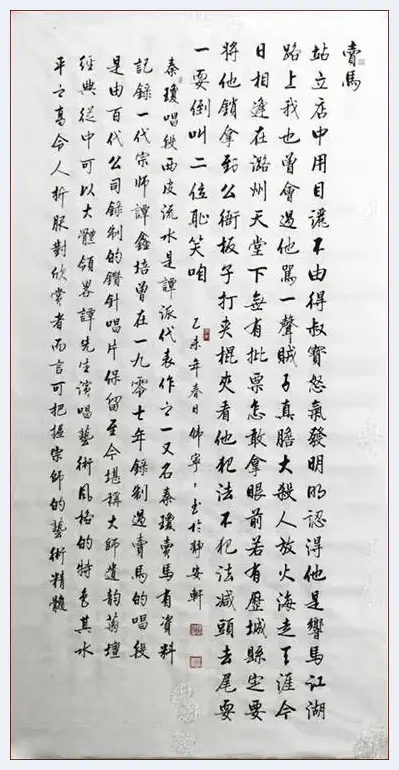 賣馬
站立店中用目謊不由得叔寶怒氣發明明認得他是響馬江湖
路上我也曾會過他罵一聲賊子真膽大殺人放火海走天涯今
日相逢在潞州天堂下無有批票怎敢拿眼前若有歷城縣定要
將他鎖拿到公衙板子打夾棍夾看他犯法不犯法減頭去尾要
一耍倒叫二位恥笑咱
乙未年春日 於靜安軒
秦瓊唱段西皮流水是譚派代表作之一又名秦瓊賣馬有資料
記錄一代宗師譚鑫培曾在一九零七年錄制過賣馬的唱段
是由百代公司錄制的鑽針唱片保留至今堪稱大師遺韵菊壇
經典從中可以大體領畧譚先生演唱藝術風格的特色其水
平之高令人折服對欣賞者而言可把握宗師的藝術精髓